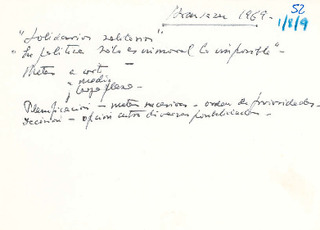 1969-
52
1/8/9
"Solidarios
"La política sólo es inmoral lo imposible"-
Metas a cort
" medio
" largo plazo-
Planificación - metas sucesivas - orden de prioridades-
Decisión - opción entre diversas posibilidades-